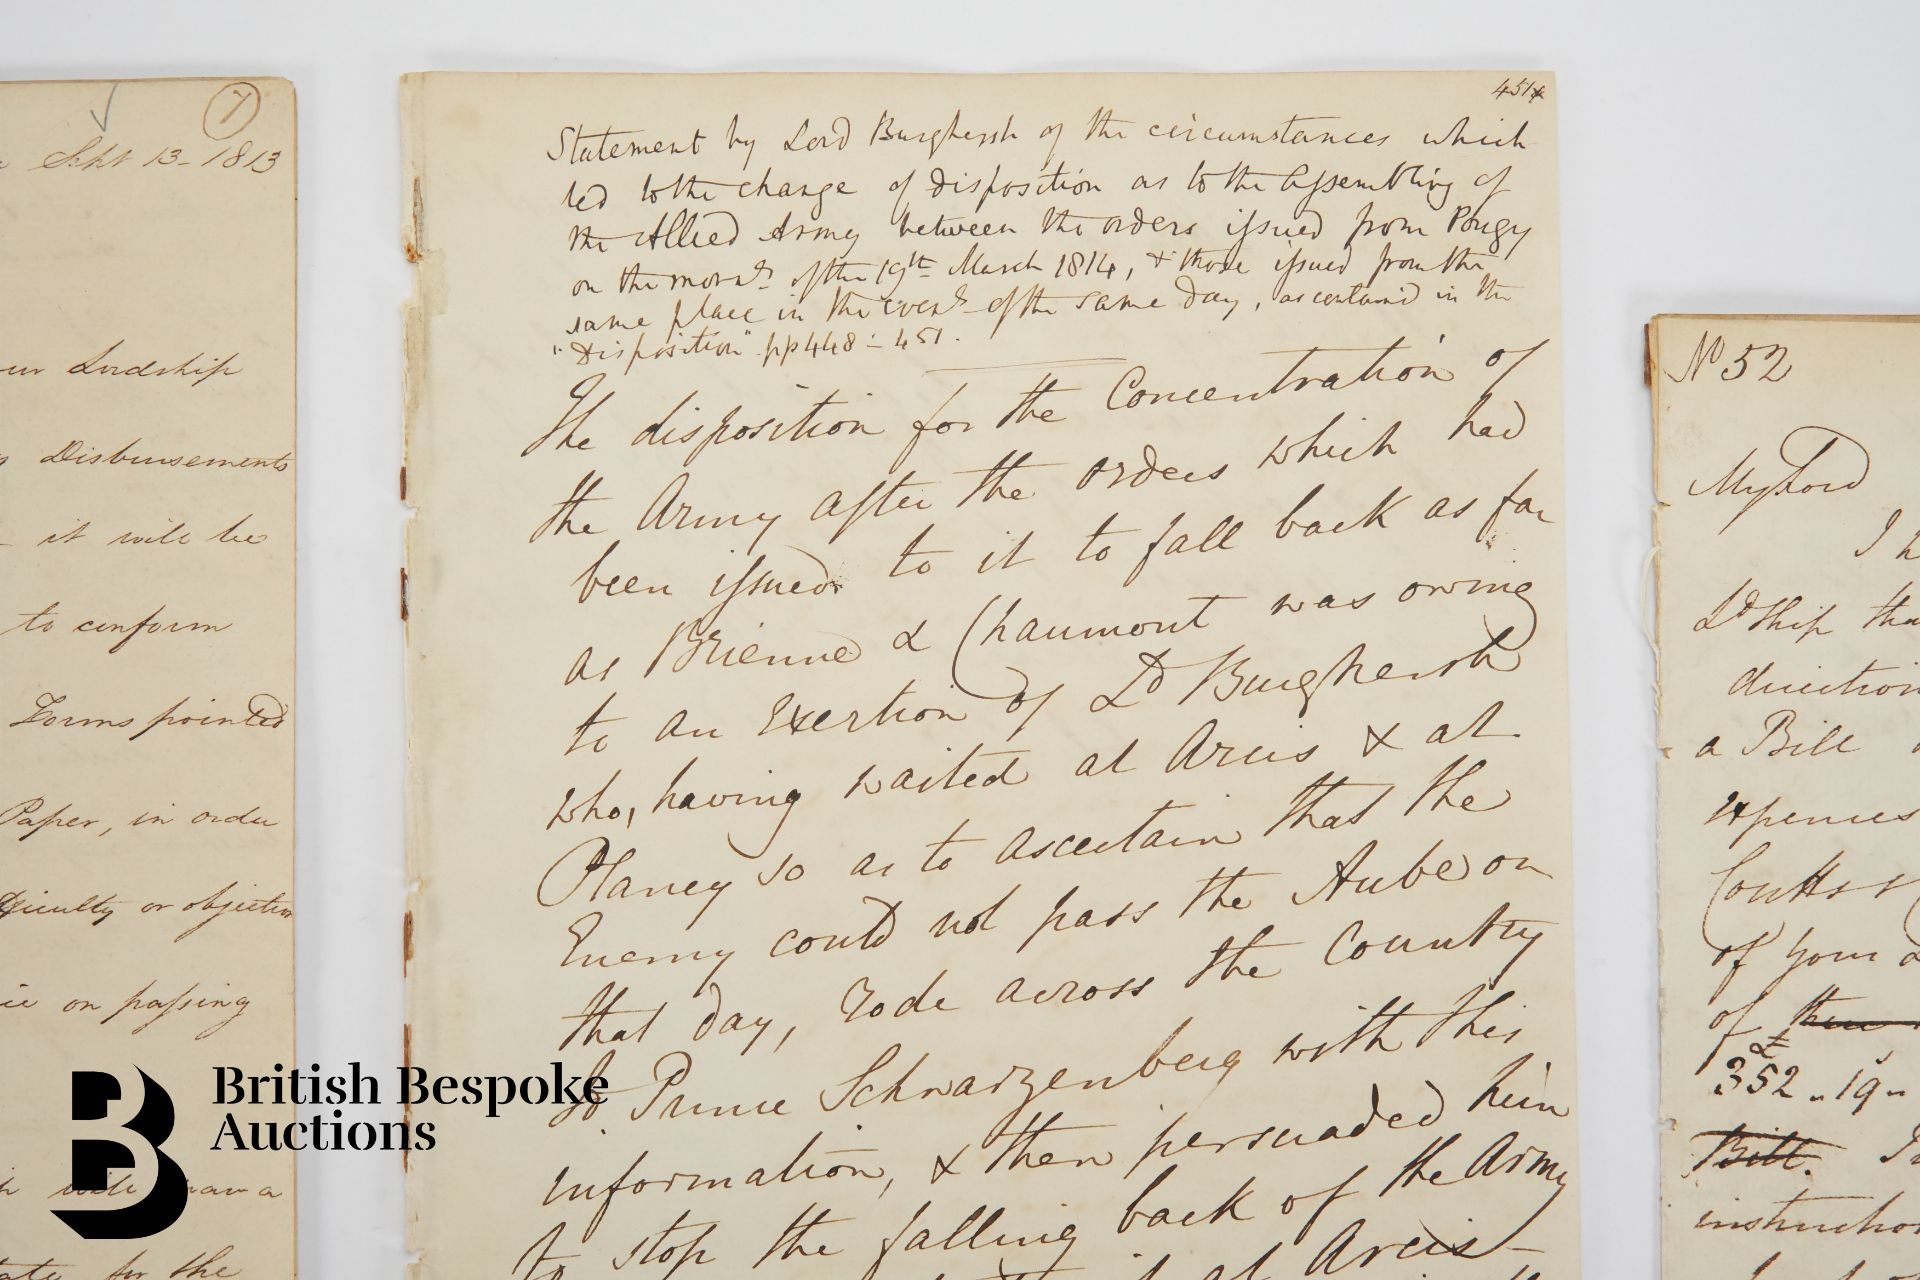 7
Sept 13 - 1813
Lordship
Disbursements
it will be
to conform
Forms pointed
Paper, in order
or objection
on passing
will
for the
451x
Statement by Lord Burghersh of the circumstances which
led to the change of disposition as to the Assembling of
the Allied Army between the orders issued from Pougy
on the morng of the 19th March 1814, & those issued from the
same place in the eveng of the same day, as contained in the
"Disposition" pp 448 - 451.
The disposition for the Concentration of
the Army after the orders which had
been issued to it to fall back as far
as Brienne & Chaumont was owing
to an Exertion of Ld Burghersh
who, having waited at Arcis & at
Plancy so as to ascertain that the
Enemy could not pass the Aube on
that day, rode across the Country
to Prince Schwarzenberg with this
information, & then persuaded him
to stop the falling back of the Army
at Arcis -
No 52
My Lord
I h
Ldship tha
direction
a Bill
expences
Coutts &
of your
of
£
352 " 19 "
Bill.
instruction
British Bespoke
Auctions